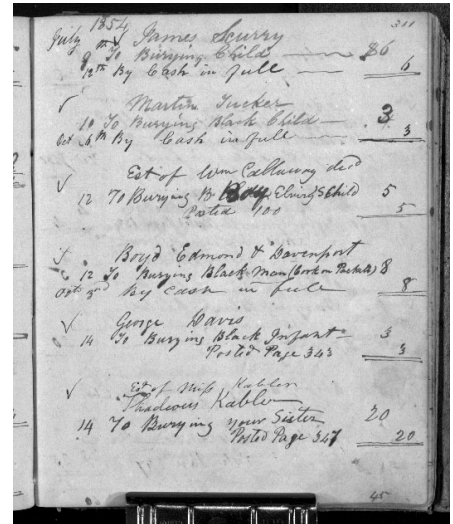 311
July 1854
✓ James Scurry
9th To Burying Child $6
12th By Cash in full 6
✓ Martin Tucker
10 To Burying Black Child 3
Oct 6th By Cash in full 3
✓ Est of Wm Callaway decd
12 To Burying B Boy Elvirys Child 5
Posted 100 5
✓ Boyd Edmond & Davenport
12 To Burying Black Man (Cook on Packett) 8
Oct 3rd By Cash in full 8
✓ George Davis
14 To Burying Black Infant 3
Posted Page 343 3
✓ Est of Miss Kabler
Kabler
14 To Burying your Sister 20
Posted Page 347 20
45